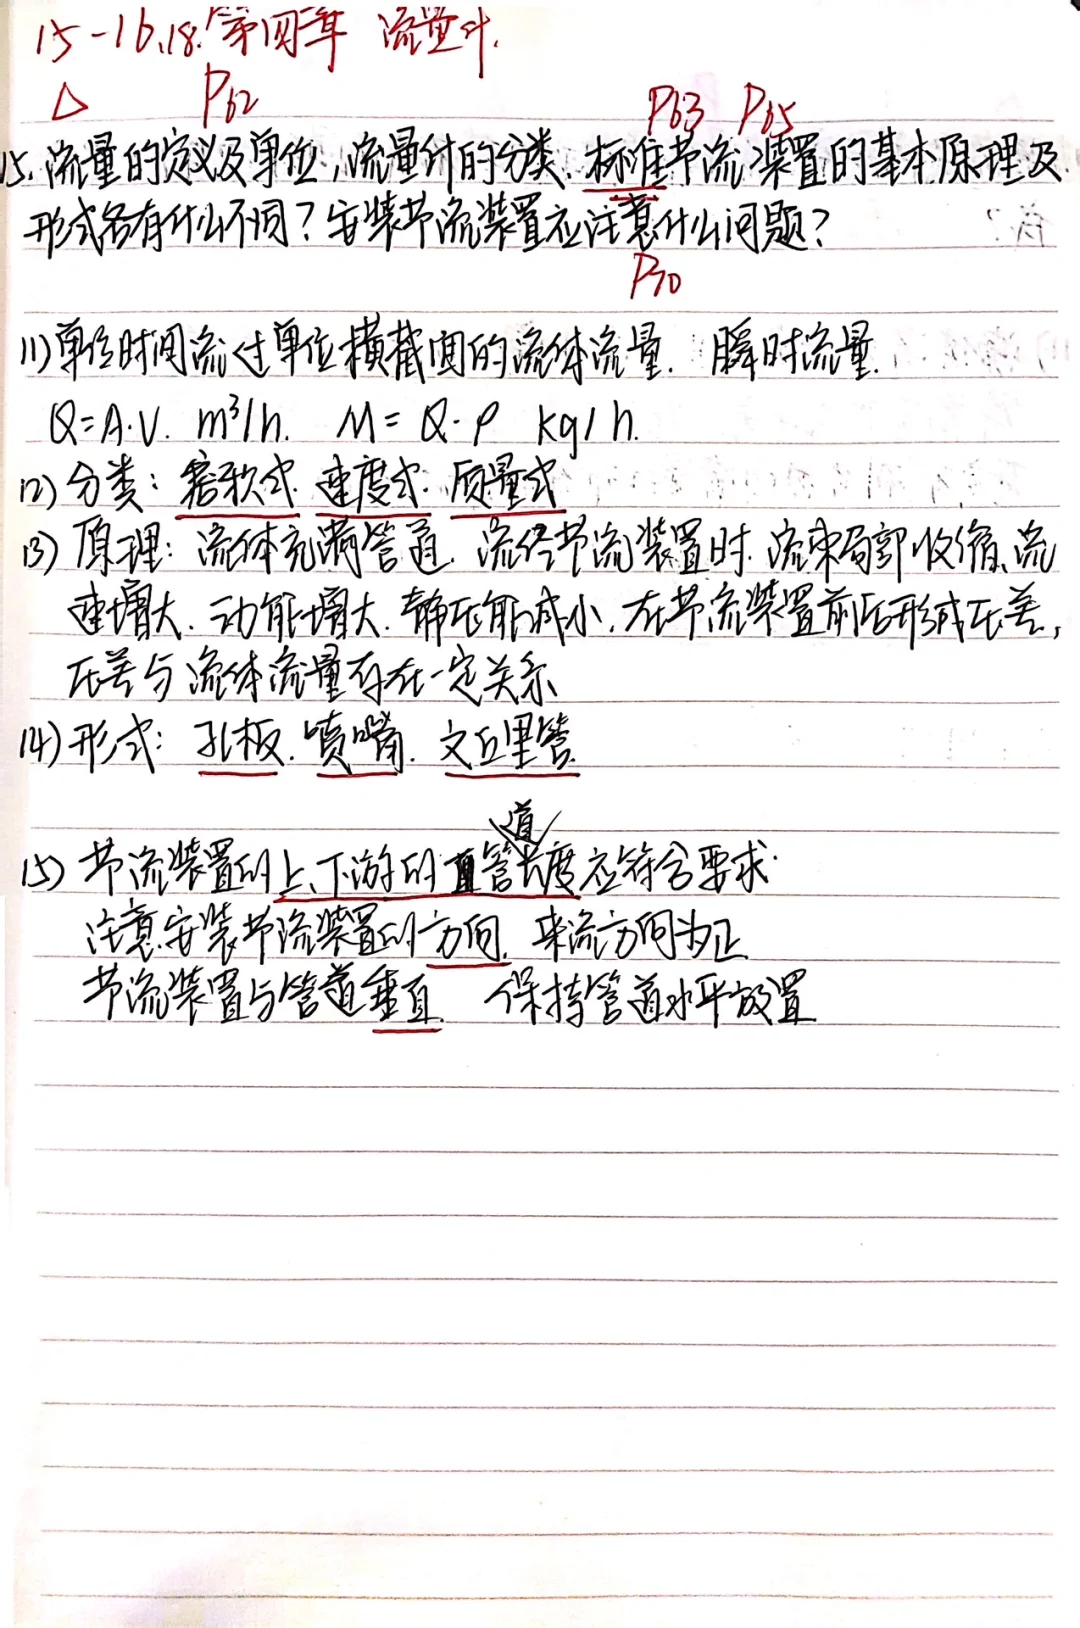 15-16.18. 第四章 流量计.
△ P62 P63 P65
15. 流量的定义及单位,流量计的分类.标准节流装置的基本原理及
形式各有什么不同?安装节流装置应注意什么问题?
P70
(1)单位时间流过单位横截面的流体流量. 瞬时流量.
Q=A·V. m³/h. M=Q·ρ kg/h.
(2)分类:容积式.速度式.质量式
(3)原理:流体充满管道.流经节流装置时.流束局部收缩.流
速增大.动能增大.静压能减小.在节流装置前后形成压差,
压差与流体流量存在一定关系
(4)形式:孔板.喷嘴.文丘里管.
道
(5)节流装置的上、下游的直管长度应符合要求.
注意安装节流装置的方向.来流方向为正
节流装置与管道垂直. 保持管道水平放置